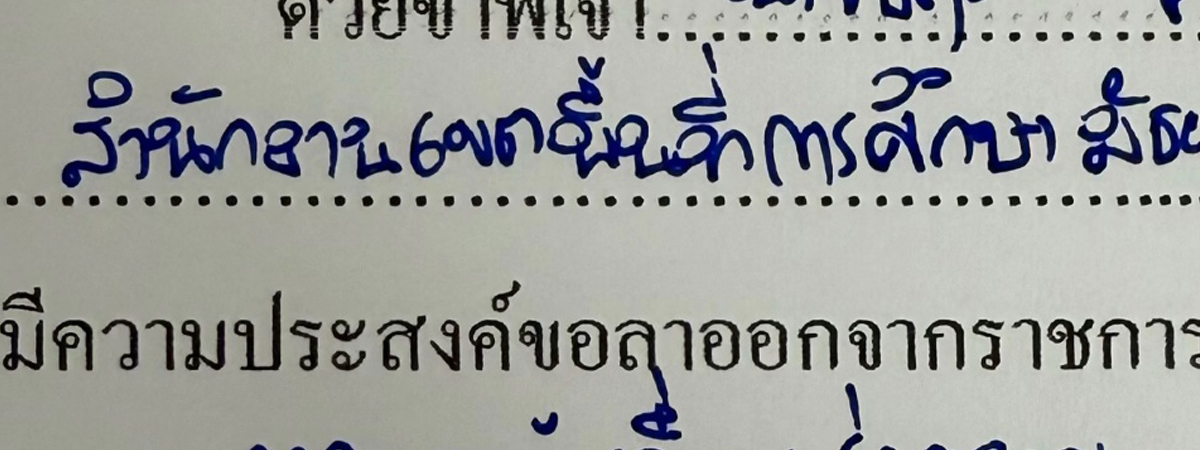 ด้วยข้าพเจ้า
สำนักงานเขตพื้นที่การศึกษา มัธย
มีความประสงค์ขอลาออกจากราชการ